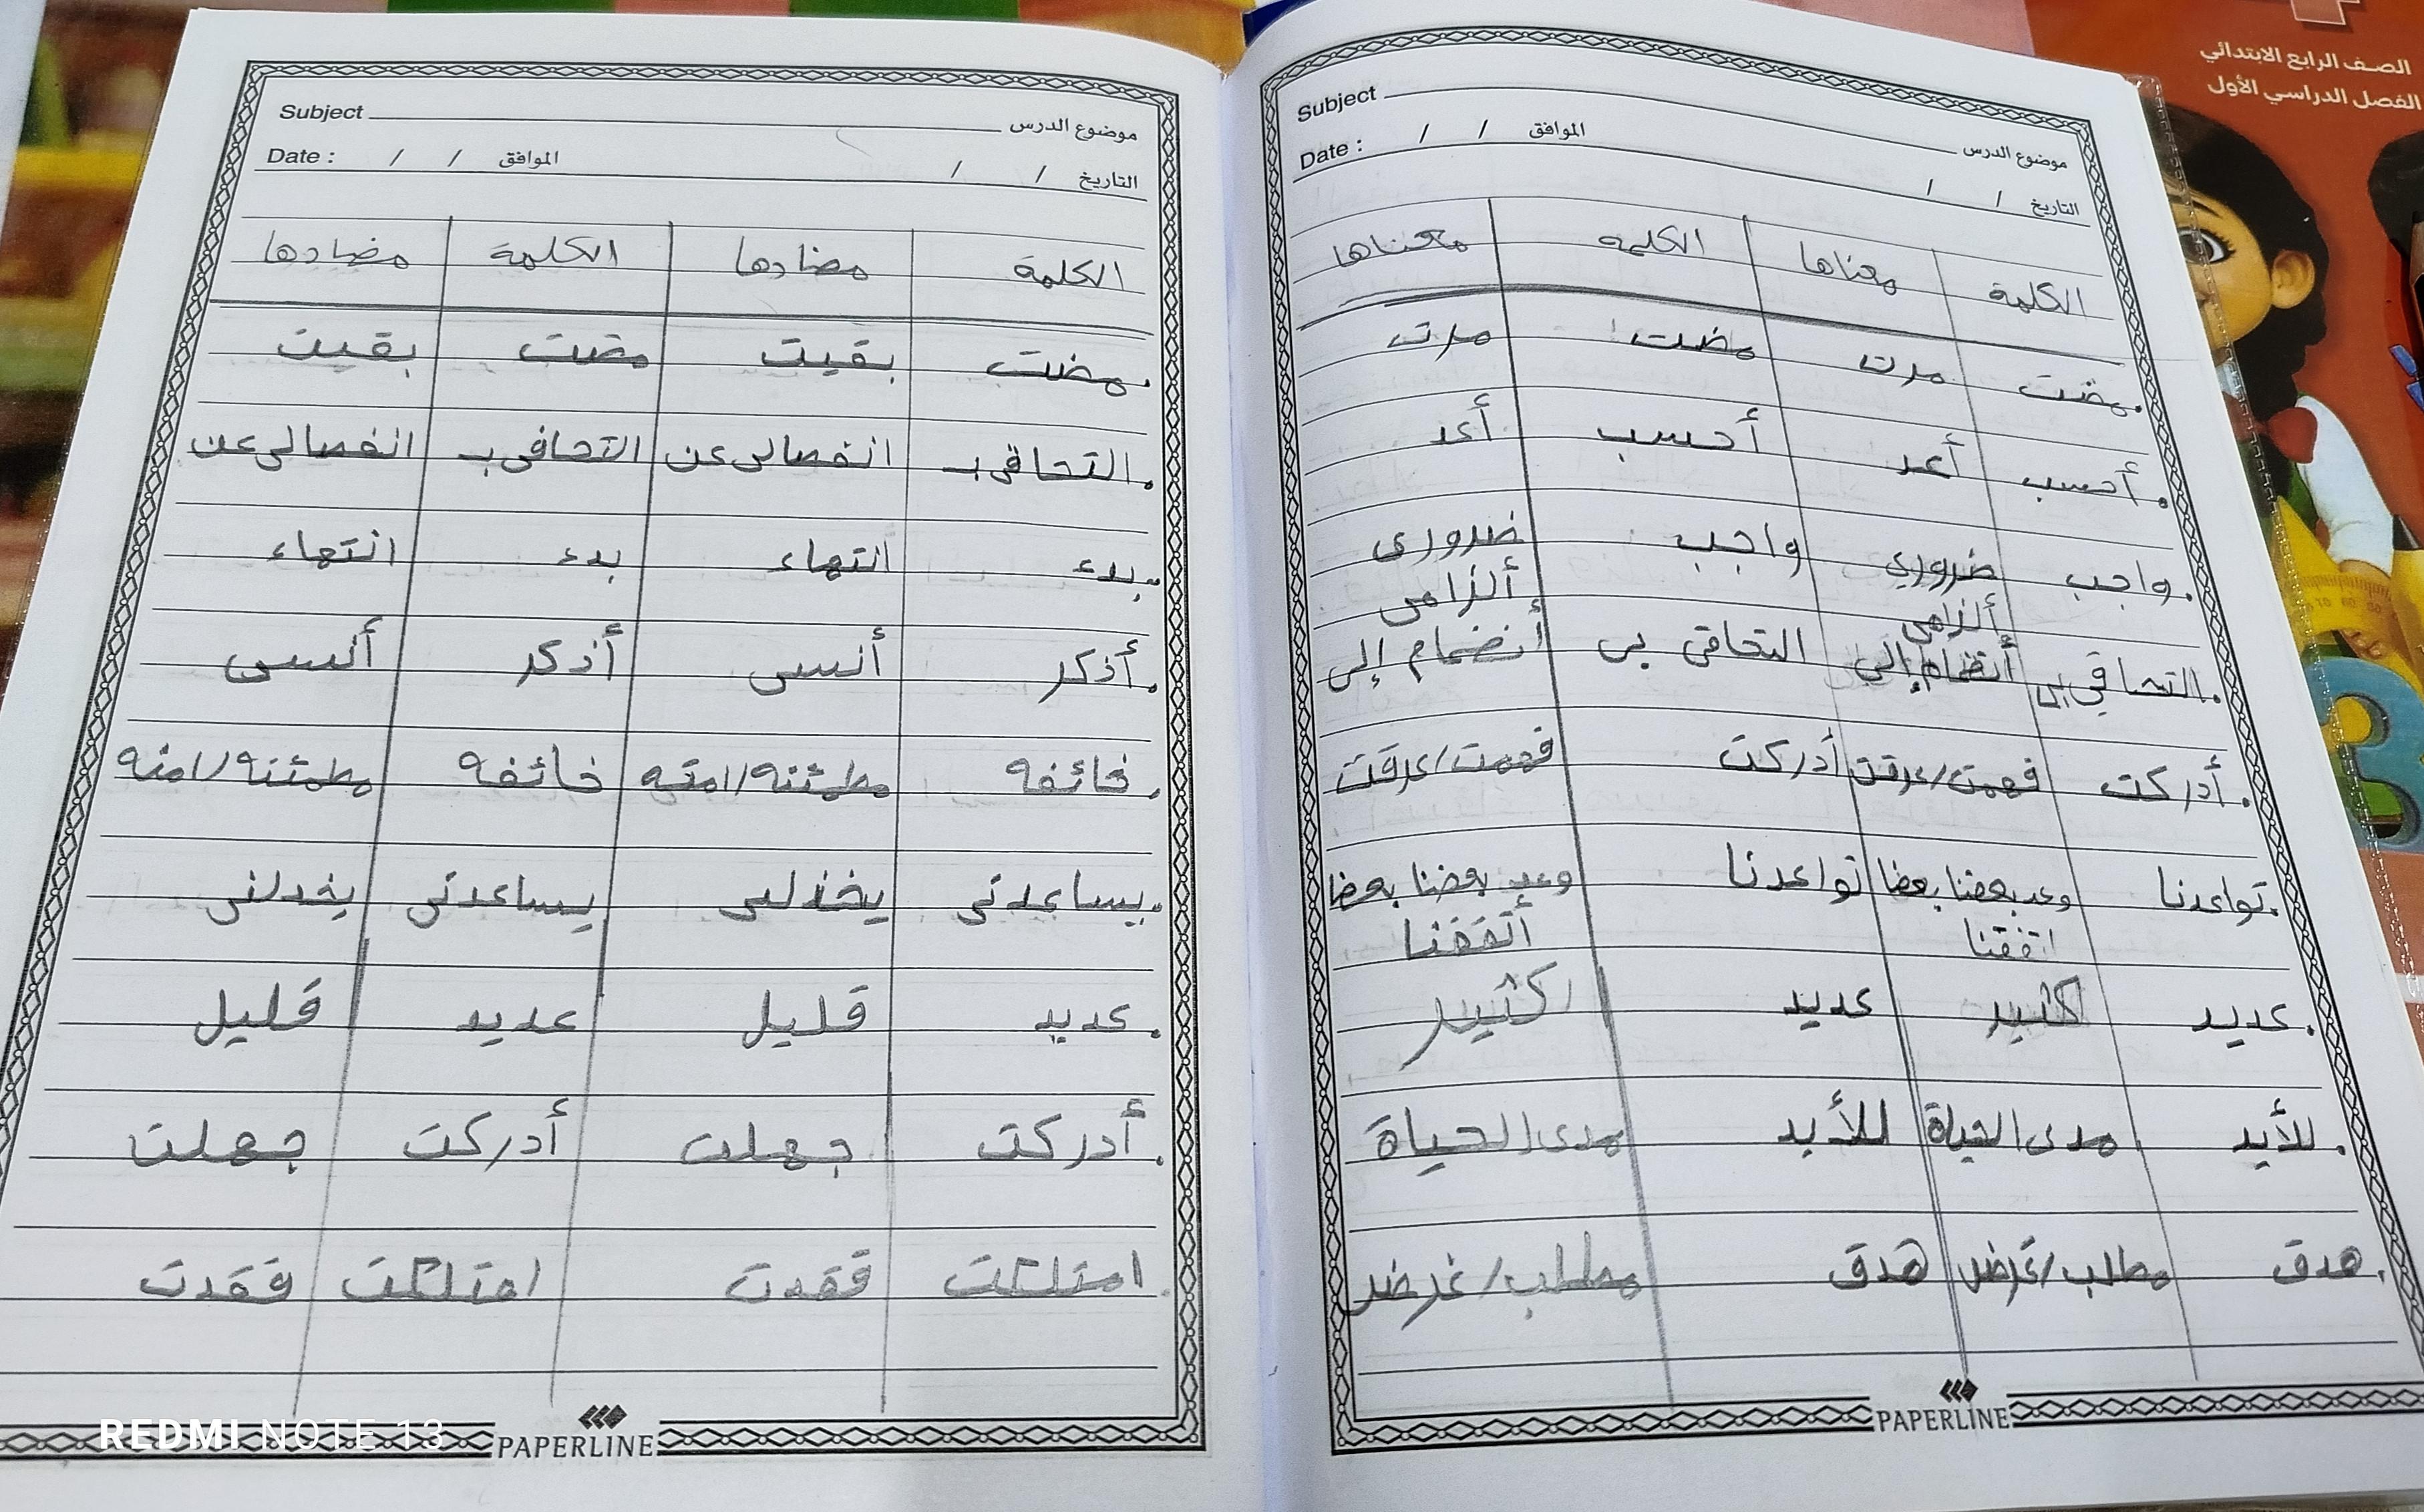 الصف الرابع الابتدائي
الفصل الدراسي الأول
Subject موضوع الدرس
Date : / / الموافق / / التاريخ
الكلمة معناها الكلمة معناها
مضت مرت مضت مرت
أحسب أعد أحسب أعد
واجب ضروري واجب ضرورى
ألزامي ألزامى
التحاقي بى أنظمام إلى التحاقى بى أنضمام إلى
أدركت فهمت/عرفت أدركت فهمت/عرفت
تواعدنا وعد بعضنا بعضا تواعدنا وعد بعضنا بعضا
اتفقنا أتفقنا
عديد كثير عديد كثير
للأبد مدى الحياة للأبد مدى الحياة
هدف مطلب/غرض هدف مطلب/غرض
PAPERLINE
Subject موضوع الدرس
Date : / / الموافق / / التاريخ
الكلمة مضادها الكلمة مضادها
مضت بقيت مضت بقيت
التحاقى بـ انفصالى عن التحاقى بـ انفصالى عن
بدء انتهاء بدء انتهاء
أذكر أنسى أذكر أنسى
خائفه مطمئنه/امنه خائفه مطمئنه/امنه
يساعدنى يخذلنى يساعدنى يخدلنى
عديد قليل عديد قليل
أدركت جهلت أدركت جهلت
امتلكت فقدت امتلكت فقدت
PAPERLINE
REDMI NOTE 13